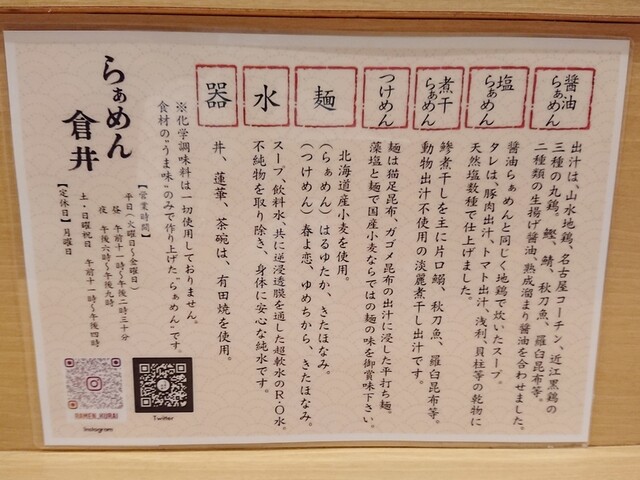 醤油らぁめん
出汁は、山水地鶏、名古屋コーチン、近江黒鶏の
三種の丸鶏。鰹、鯖、秋刀魚、羅臼昆布等。
二種類の生揚げ醤油、熟成溜まり醤油を合わせました。
塩らぁめん
醤油らぁめんと同じく地鶏で炊いたスープ。
タレは、豚肉出汁、トマト出汁、浅利、貝柱等の乾物に
天然塩数種で仕上げました。
煮干らぁめん
鯵煮干しを主に片口鰯、秋刀魚、羅臼昆布等。
動物出汁不使用の淡麗煮干し出汁です。
つけめん
麺は猫足昆布、ガゴメ昆布の出汁に浸した平打ち麺。
藻塩と麺で国産小麦ならではの麺の味を御賞味下さい。
麺
北海道産小麦を使用。
(らぁめん)はるゆたか、きたほなみ。
(つけめん)春よ恋、ゆめちから、きたほなみ。
水
スープ、飲料水、共に逆浸透膜を通した超軟水のR・O水。
不純物を取り除き、身体に安心な純水です。
器
丼、蓮華、茶碗は、有田焼を使用。
※化学調味料は一切使用しておりません。
食材の"うま味"のみで作り上げた"らぁめん"です。
らぁめん
倉井
【営業時間】
平日(火曜日〜金曜日)
昼 午前十一時〜午後二時三十分
夜 午後六時〜午後九時
土・日曜祝日 午前十一時〜午後四時
【定休日】月曜日
RAMEN_KURAI
Instagram
Twitter